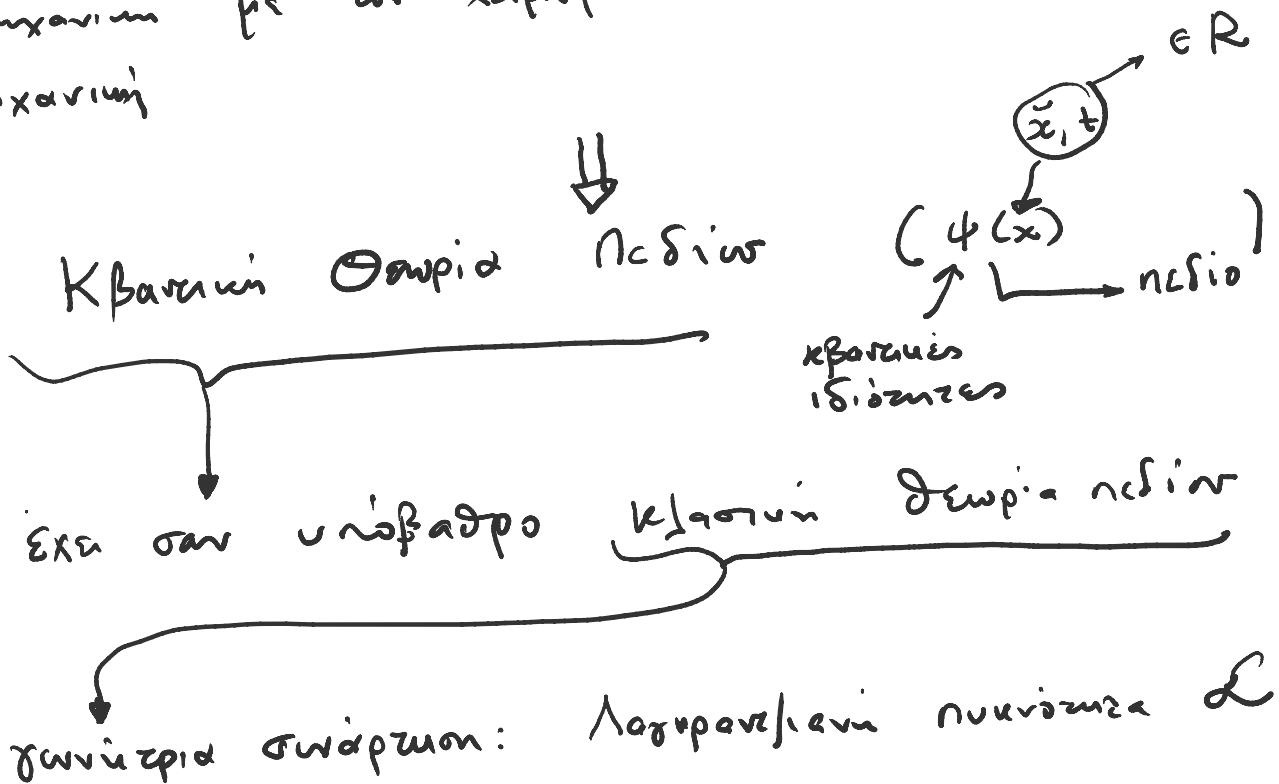 με
∈ R
x̌, t
Κβαντική Θεωρία Πεδίου
( ψ(x) )
πεδίο
κβαντικές
ιδιότητες
έχει σαν υπόβαθρο κλασική θεωρία πεδίου
γεννήτρια συνάρτηση: Λαγκρανζιανή πυκνότητα ℒ